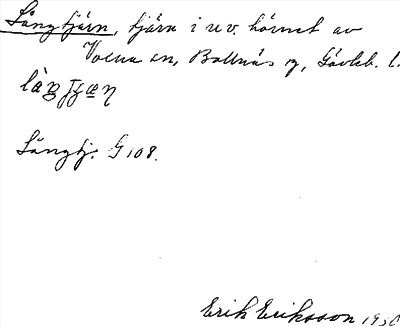 Långtjärn, tjärn i nv. hörnet av
Voxna sn, Bollnäs , Gävleb. l.
Långtj. G 108.
Erik Eriksson 19